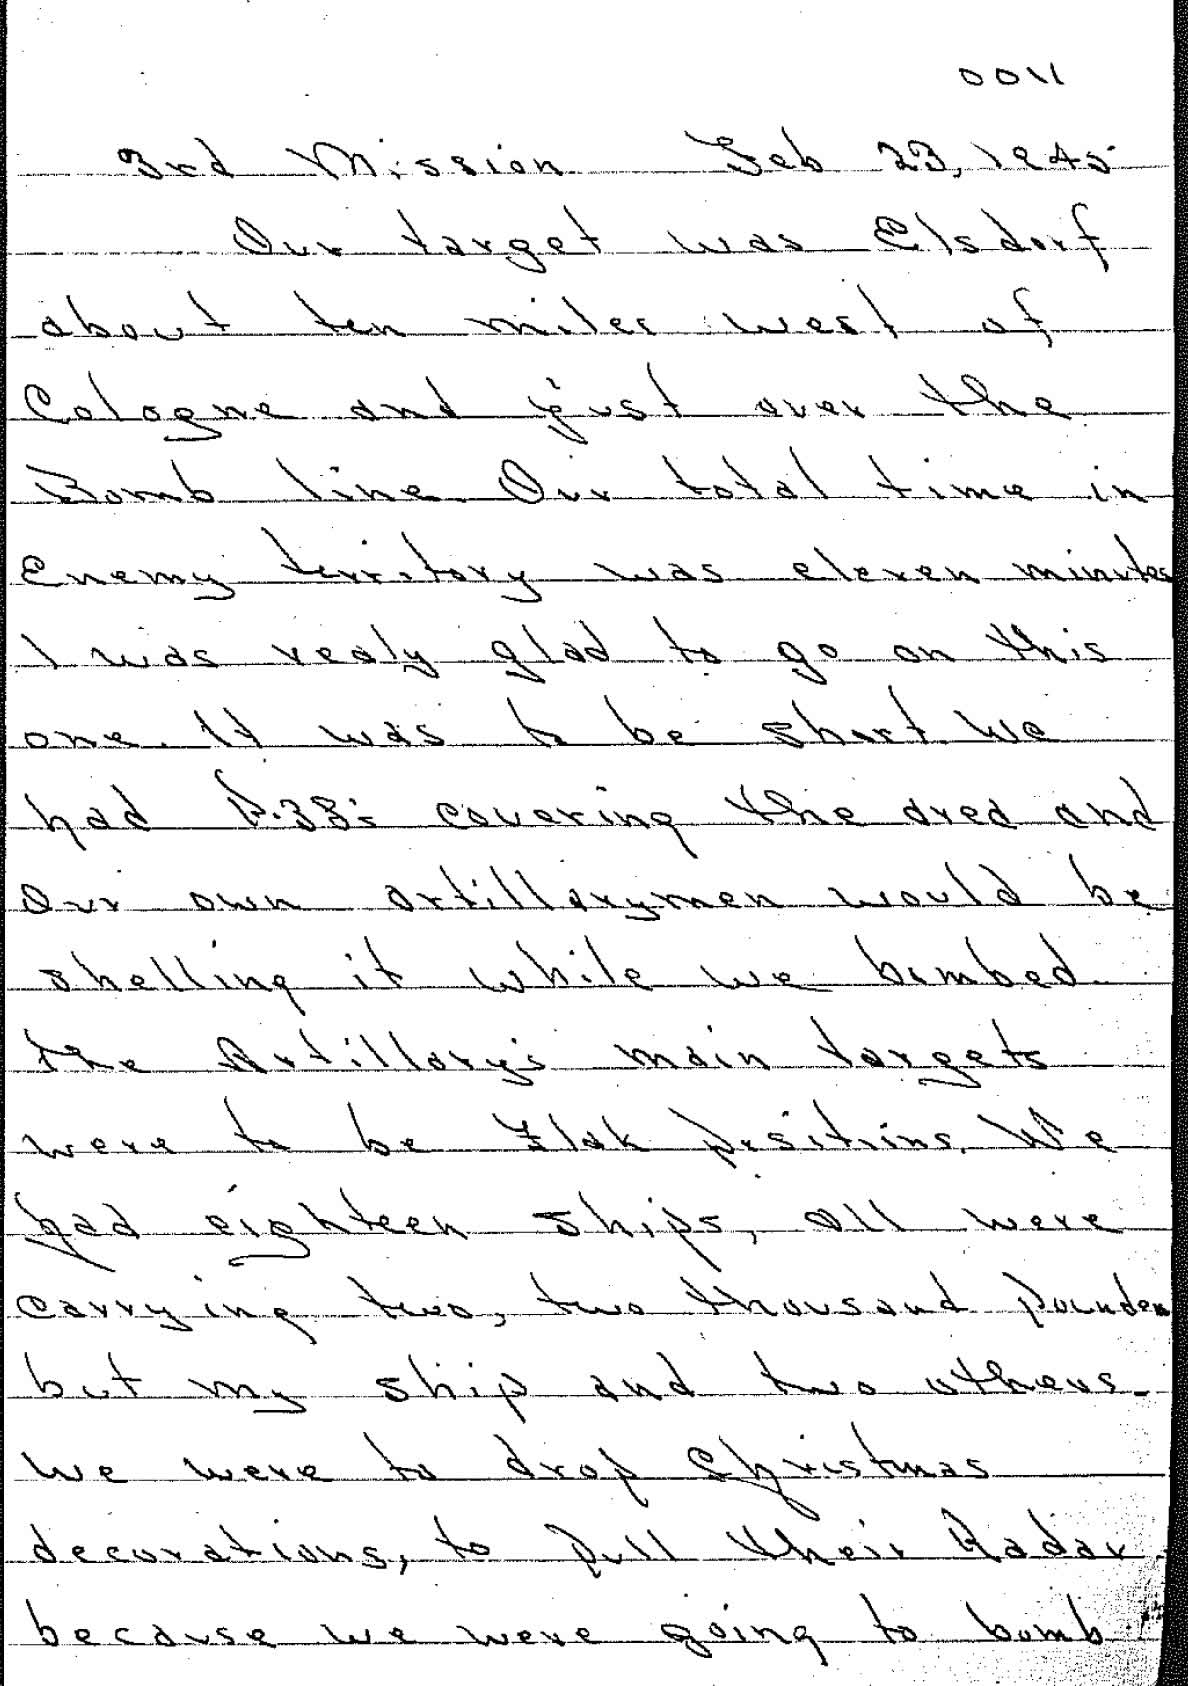 0011
3rd Mission Feb 23, 1945
Our target was Elsdorf
about ten miles west of
Cologne and just over the
Bomb line. Our total time in
Enemy territory was eleven minutes
I was realy glad to go on this
one. It was to be short. We
had P.38's covering the area and
Our own artillarymen would be
shelling it while we bombed.
The Artillary's main targets
were to be Flak positions. We
had eighteen ships, all were
carrying two, two thousand pounders
but my ship and two others.
We were to drop Christmas
decorations, to pull their Radar
because we were going to bomb